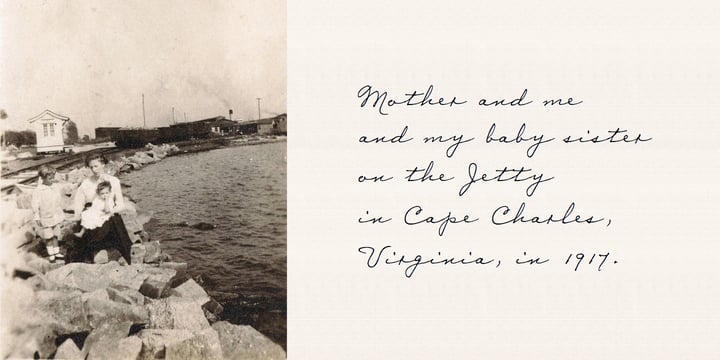 Mother and me
and my baby sister
on the Jetty
in Cape Charles,
Virginia, in 1917.